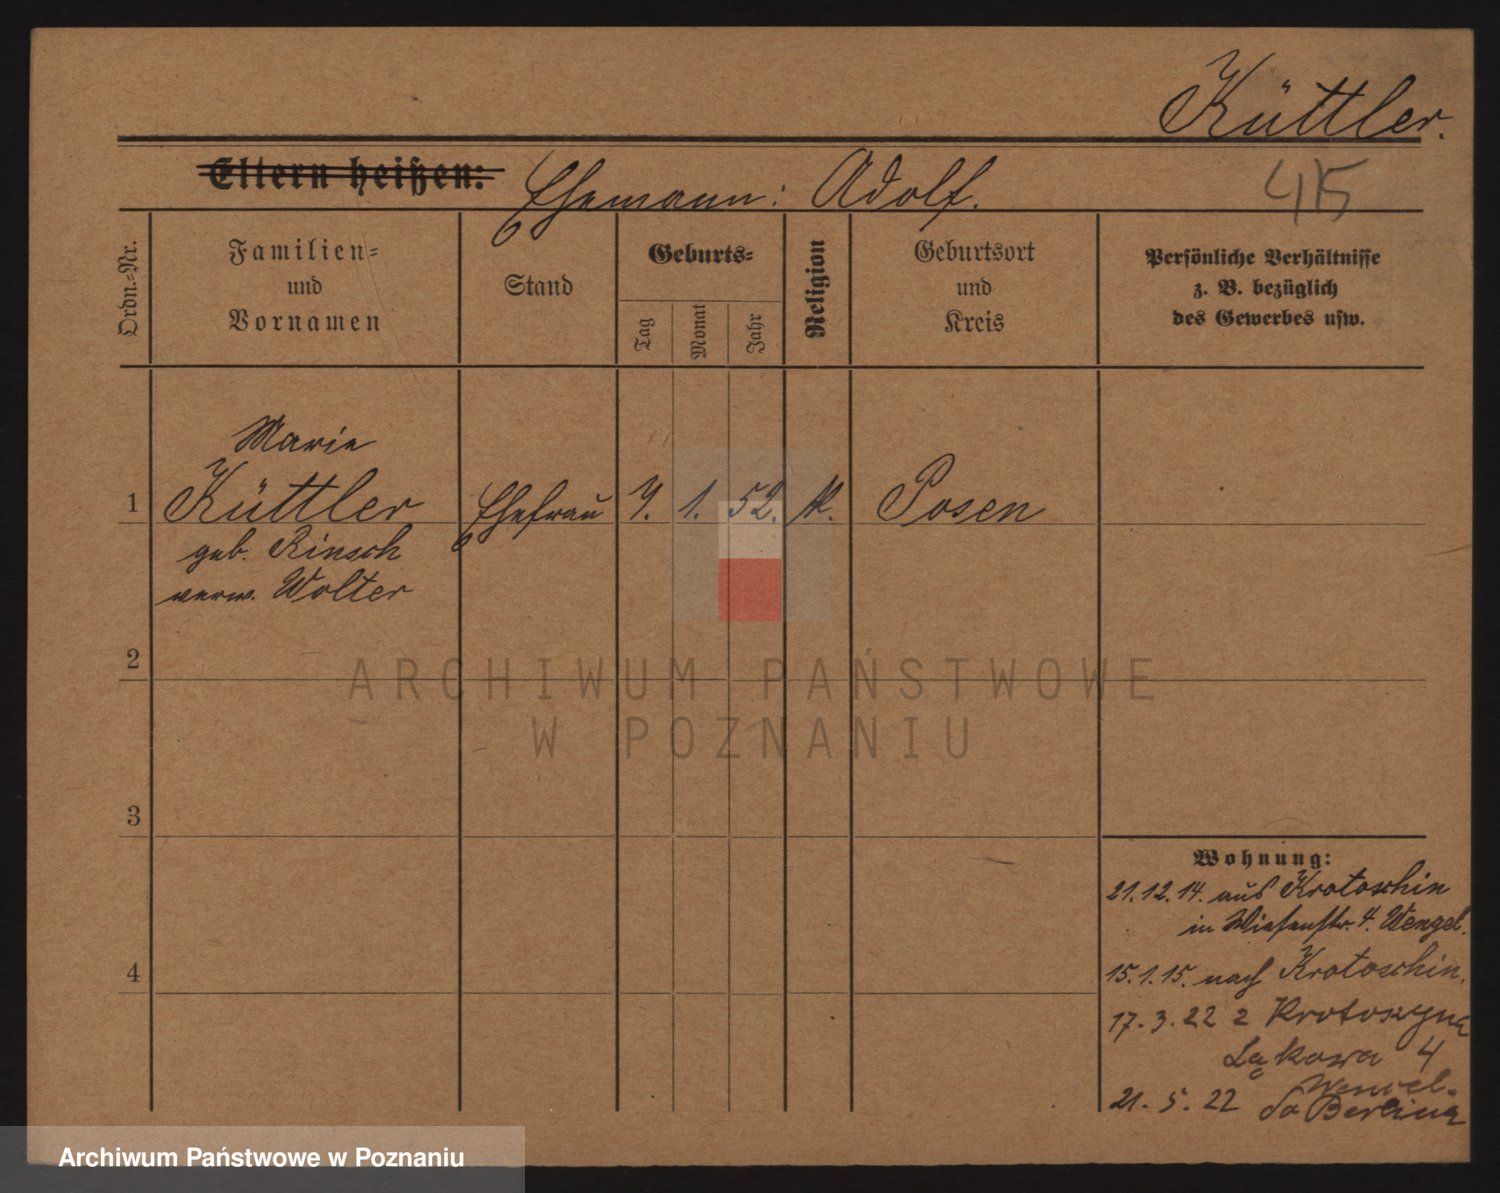 Küttler.
415
Eltern heißen: Ehemann: Adolf.
Ordn.-Nr.
Familien-
und
Vornamen
Stand
Geburts-
Tag
Monat
Jahr
Religion
Geburtsort
und
Kreis
Persönliche Verhältnisse
z. B. bezüglich
des Gewerbes usw.
Marie
1 Küttler Ehefrau 7. 1. 52. k. Posen
geb. Rinsch
verw. Wolter
2
ARCHIWUM PAŃSTWOWE
W POZNANIU
3
4
Wohnung:
21.12.14. aus Krotoschin
in Wiesenstr. 4. Wenzel.
15.1.15. nach Krotoschin.
17.3.22 z Krotoszyna
Łąkowa 4
Wenzel.
21.5.22 do Berlina
Archiwum Państwowe w Poznaniu